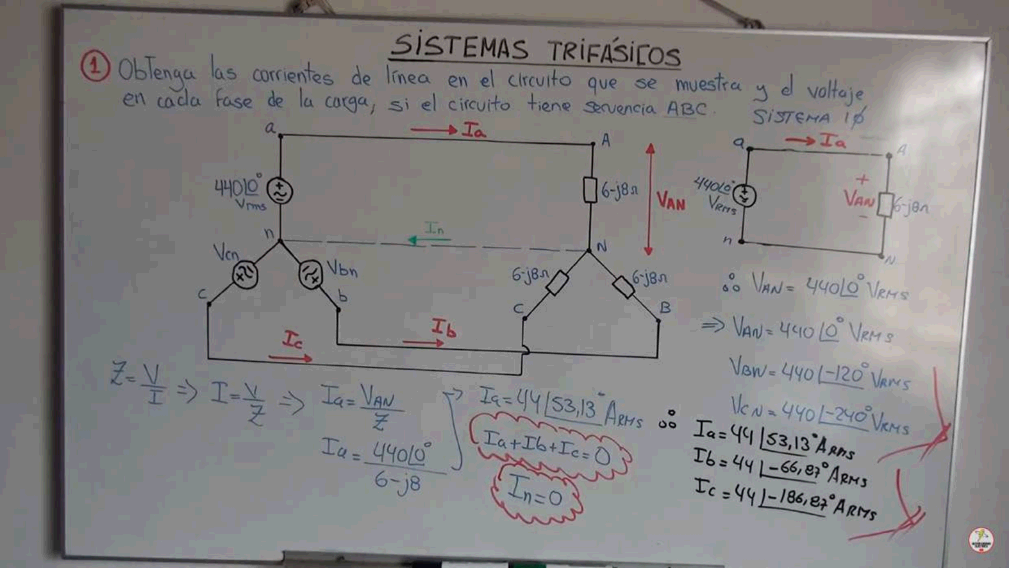 SISTEMAS TRIFÁSICOS
1 Obtenga las corrientes de línea en el circuito que se muestra y el voltaje
en cada fase de la carga, si el circuito tiene secuencia ABC.
SISTEMA 1ϕ
a
Ia
A
440∠0°
Vrms
6-j8Ω
VAN
n
In
N
Vcn
Vbn
6-j8Ω
6-j8Ω
c
b
C
B
Ib
Ic
a
Ia
A
440∠0°
VRMS
+
VAN
-
6-j8Ω
n
N
∴ VAN = 440∠0° VRMS
⇒ VAN = 440∠0° VRMS
VBN = 440∠-120° VRMS
VCN = 440∠-240° VRMS
Z = V/I ⇒ I = V/Z ⇒ Ia = VAN/Z
Ia = 440∠0°/6-j8
Ia = 44∠53,13° ARMS ∴
Ia + Ib + Ic = 0
In = 0
Ia = 44∠53,13° ARMS
Ib = 44∠-66,87° ARMS
Ic = 44∠-186,87° ARMS